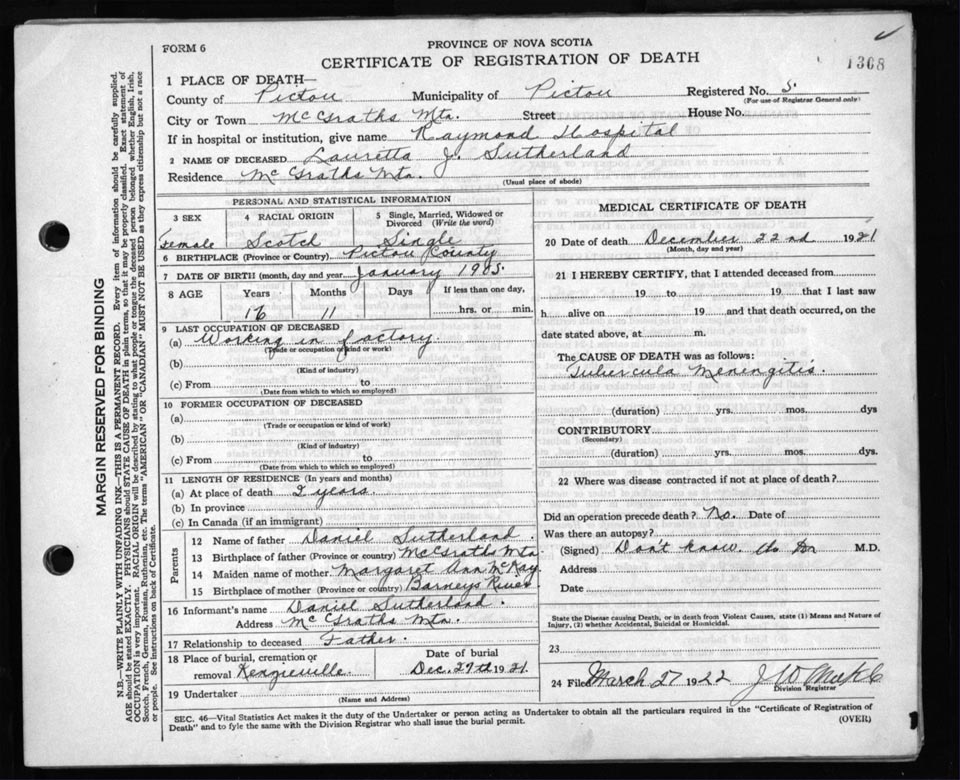 FORM 6
PROVINCE OF NOVA SCOTIA
CERTIFICATE OF REGISTRATION OF DEATH
1368
1 PLACE OF DEATH—
County of Pictou Municipality of Pictou Registered No. 5.
(For use of Registrar General only)
City or Town McGraths Mtn. Street House No.
If in hospital or institution, give name Raymond Hospital
2 NAME OF DECEASED Lauretta J. Sutherland
Residence McGraths Mtn.
(Usual place of abode)
MARGIN RESERVED FOR BINDING
N.B.—WRITE PLAINLY WITH UNFADING INK—THIS IS A PERMANENT RECORD. Every item of information should be carefully supplied.
AGE should be stated EXACTLY. PHYSICIANS should STATE CAUSE OF DEATH in plain terms, so that it may be properly classified. Exact statement of
OCCUPATION is very important. RACIAL ORIGIN will be described by stating to what people or tongue the deceased person belonged whether English, Irish,
Scotch, French, German, Russian, Ruthenian, etc. The terms "AMERICAN" OR "CANADIAN" MUST NOT BE USED as they express citizenship but not a race
or people. See instructions on back of Certificate.
PERSONAL AND STATISTICAL INFORMATION
3 SEX 4 RACIAL ORIGIN 5 Single, Married, Widowed or
Divorced (Write the word)
Female Scotch Single
6 BIRTHPLACE (Province or Country) Pictou County
7 DATE OF BIRTH (month, day and year January 1905.
8 AGE Years Months Days If less than one day,
16 11 hrs. or min.
9 LAST OCCUPATION OF DECEASED
(a) Working in factory.
(Trade or occupation of kind or work)
(b)
(Kind of industry)
(c) From to
(Date from which to which so employed)
10 FORMER OCCUPATION OF DECEASED
(a)
(Trade or occupation or kind of work)
(b)
(Kind of industry)
(c) From to
(Date from which to which so employed)
11 LENGTH OF RESIDENCE (In years and months)
(a) At place of death 2 years.
(b) In province
(c) In Canada (if an immigrant)
Parents
12 Name of father Daniel Sutherland.
13 Birthplace of father (Province or country) McGraths Mtn
14 Maiden name of mother Margaret Ann McKay.
15 Birthplace of mother (Province or country) Barneys River
16 Informant's name Daniel Sutherland.
Address McGraths Mtn.
17 Relationship to deceased Father.
18 Place of burial, cremation or Date of burial
removal Kenzieville Dec. 27th 1921.
19 Undertaker
(Name and Address)
MEDICAL CERTIFICATE OF DEATH
20 Date of death December 22nd 1921
(Month, day and year)
21 I HEREBY CERTIFY, that I attended deceased from
19 to 19 that I last saw
h alive on 19 and that death occurred, on the
date stated above, at m.
The CAUSE OF DEATH was as follows:
Tubercula Meningitis.
(duration) yrs. mos. dys
CONTRIBUTORY
(Secondary)
(duration) yrs. mos. dys.
22 Where was disease contracted if not at place of death?
Did an operation precede death? No. Date of
Was there an autopsy?
(Signed) Don't know. No Dr M.D.
Address
Date
State the Disease causing Death, or in death from Violent Causes, state (1) Means and Nature of
Injury, (2) whether Accidental, Suicidal or Homicidal.
23
24 Filed March 27 1922 J W
Division Registrar
SEC. 46—Vital Statistics Act makes it the duty of the Undertaker or person acting as Undertaker to obtain all the particulars required in the "Certificate of Registration of
Death" and to fyle the same with the Division Registrar who shall issue the burial permit.
(OVER)